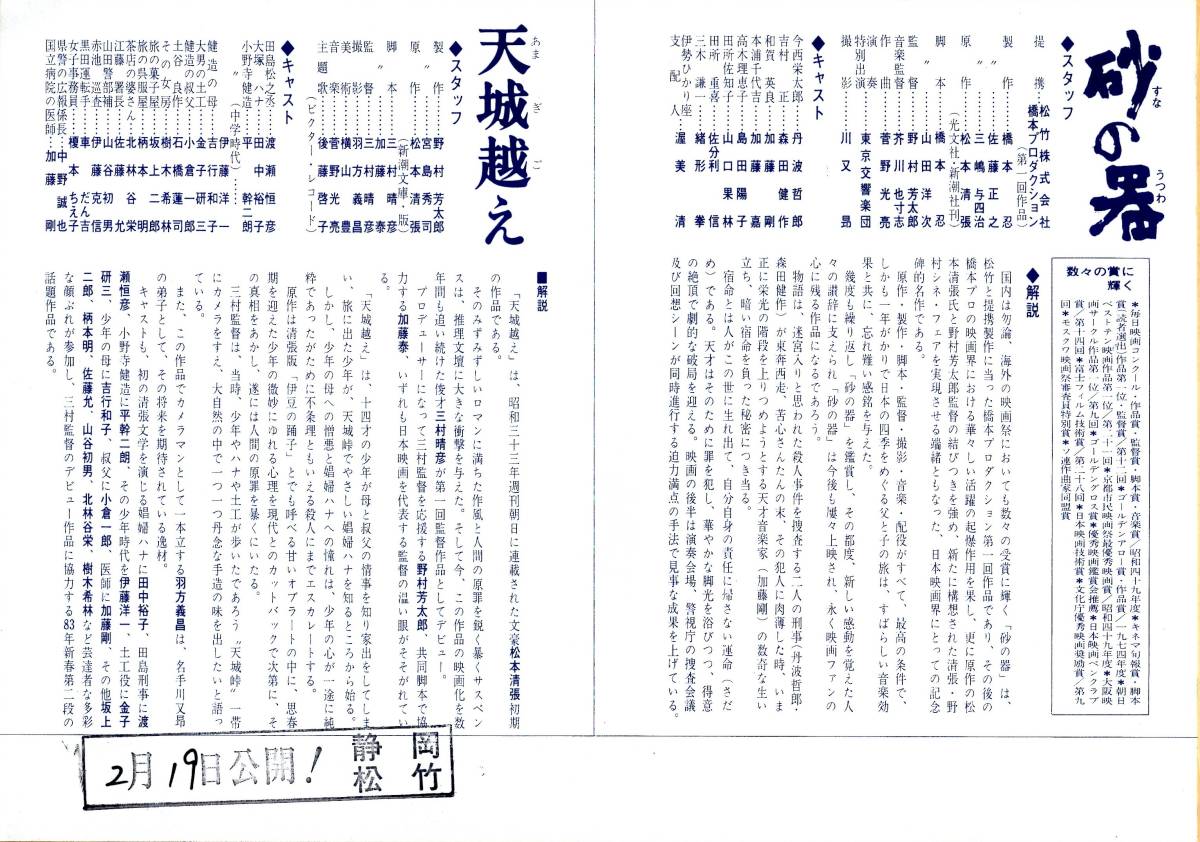 砂の器
すな
うつわ
◆スタッフ
提携 松竹株式会社
橋本プロダクション
(第一回作品)
製作 橋本忍
〃 佐藤正之
〃 三嶋与四治
原作 松本清張
(光文社・新潮社刊)
脚本 橋本忍
〃 山田洋次
監督 野村芳太郎
音楽監督 芥川也寸志
作曲 菅野光亮
演奏
特別出演 東京交響楽団
撮影 川又昂
◆キャスト
今西栄太郎 丹波哲郎
吉村正 森田健作
和賀英良 加藤剛
本浦千代吉 加藤嘉
高木理恵子 島田陽子
田所佐知子 山口果林
田所重喜 佐分利信
三木謙一 緒形拳
伊勢ひかり座
支配人 渥美清
数々の賞に
輝く
*毎日映画コンクール・作品賞・監督賞・脚本賞・音楽賞/昭和四十九年度*キネマ旬報賞・脚本
賞(読者選出)作品第一位・監督賞/第十二回*ゴールデンアロー賞・作品賞/一九七四年度*朝日
ベストテン映画作品第一位/第二十一回*京都市民映画祭最優秀映画賞/昭和四十九年度*大阪映
画サークル作品第一位/第九回*ゴールデングロス賞*優秀映画鑑賞会推薦*日本映画ペンクラブ
賞/第十四回*富士フィルム技術賞/第二十八回*日本映画技術賞*文化庁優秀映画奨励賞/第九
回*モスクワ映画祭審査員特別賞*ソ連作曲家同盟賞
◆解説
国内は勿論、海外の映画祭においても数々の受賞に輝く「砂の器」は、
松竹と提携製作に当った橋本プロダクション第一回作品であり、その後の
橋本プロの映画界における華々しい活躍の起爆作用を果し、更に原作の松
本清張氏と野村芳太郎監督の結びつきを強め、新たに構想された清張・野
村シネ・フェアを実現させる端緒ともなった、日本映画界にとっての記念
碑的名作である。
原作・製作・脚本・監督・撮影・音楽・配役がすべて、最高の条件で、
しかも一年がかりで日本の四季をめぐる父と子の旅は、すばらしい音楽効
果と共に、忘れ難い感銘を与えた。
幾度も繰り返し「砂の器」を鑑賞し、その都度、新しい感動を覚えた人
々の讃辞に支えられ「砂の器」は今後も屢々上映され、永く映画ファンの
心に残る作品になるであろう。
物語は、迷宮入りと思われた殺人事件を捜査する二人の刑事(丹波哲郎・
森田健作)が東奔西走、苦心さんたんの末、その犯人に肉薄した時、いま
正に栄光の階段を上りつめようとする天才音楽家(加藤剛)の数奇な生い
立ちと、暗い宿命を負った秘密につき当る。
宿命とは人がこの世に生れ出て、自分自身の責任に帰さない運命(さだ
め)である。天才はそのために罪を犯し、華やかな脚光を浴びつつ、得意
の絶頂で劇的な破局を迎える。映画の後半は演奏会場、警視庁の捜査会議
及び回想シーンが同時進行する迫力満点の手法で見事な成果を上げている。
天城越え
あまぎご
◆スタッフ
製作 野村芳太郎
〃 宮島秀司
原作 松本清張
(新潮文庫・版)
脚本 三村晴彦
〃 加藤泰
監督 三村晴彦
撮影 羽方義昌
美術 横山豊
音楽 菅野光亮
主題歌 後藤啓子
(ビクター・レコード)
◆キャスト
田島松之丞 渡瀬恒彦
大塚ハナ 田中裕子
小野寺健造 平幹二朗
〃(中学時代)……
伊藤洋一
健造の母 吉行和子
大男の土工 金子研三
健造の叔父 小倉一郎
土谷良作 石橋蓮司
その女房 樹木希林
旅の菓子屋 坂上二郎
旅の呉服屋 柄本明
茶店の婆さん 北林谷栄
江藤署長 佐藤允
山田警部補 山谷初男
赤池巡査 伊藤克信
黒田運転手 車だん吉
女子事務員 榎本ちえ子
県警の広報係長 中野誠也
国立病院の医師 加藤剛
■解説
「天城越え」は、昭和三十三年週刊朝日に連載された文豪松本清張初期
の作品である。
そのみずみずしいロマンに満ちた作風と人間の原罪を鋭く暴くサスペン
スは、推理文壇に大きな衝撃を与えた。そして今、この作品の映画化を数
年間も追い続けた俊才三村晴彦が第一回監督作品としてデビュー。
プロデューサーになって三村監督を応援する野村芳太郎、共同脚本で協
力する加藤泰、いずれも日本映画を代表する監督の温い眼がそそがれてい
る。
「天城越え」は、十四才の少年が母と叔父の情事を知り家出をしてしま
い、旅に出た少年が、天城峠でやさしい娼婦ハナを知るところから始る。
しかし、少年の母への愛と娼婦ハナへの憧れは、少年の心が一途に純
粋であったがために不条理ともいえる殺人にまでエスカレートする。
原作は清張版「伊豆の踊子」とでも呼べる甘いオブラートの中に、思春
期を迎えた少年の微妙にゆれる心理を現代とのカットバックで次第に、そ
の真相をあかし、遂には人間の原罪を暴くにいたる。
三村監督は、当時、少年やハナや土工が歩いたであろう〝天城峠〟一帯
にカメラをすえ、大自然の中で一つ一つ丹念な手造の味を出したいと語っ
ている。
また、この作品でカメラマンとして一本立する羽方義昌は、名手川又昂
の弟子として、その将来を期待されている逸材。
キャストも、初の清張文学を演じる娼婦ハナに田中裕子、田島刑事に渡
瀬恒彦、小野寺健造に平幹二朗、その少年時代を伊藤洋一、土工役に金子
研三、少年の母に吉行和子、叔父に小倉一郎、医師に加藤剛、その他坂上
二郎、柄本明、佐藤允、山谷初男、北林谷栄、樹木希林など芸達者な多彩
な顔ぶれが参加し、三村監督のデビュー作品に協力する83年新春第二段の
話題作品である。
2月19日公開!
静岡
松竹